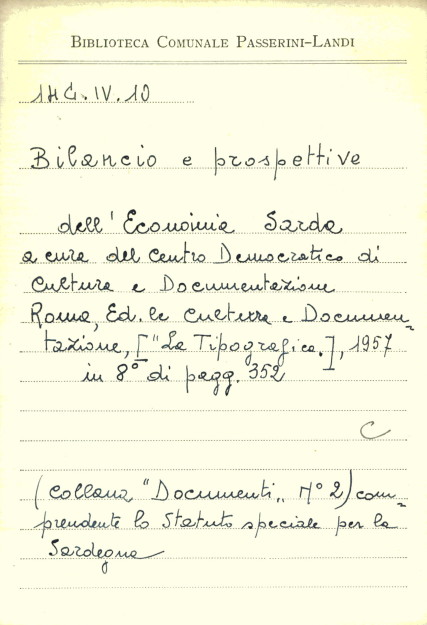 BIBLIOTECA COMUNALE PASSERINI-LANDI
14C.IV.10
Bilancio e prospettive
dell'Economia Sarda
a cura del Centro Democratico di
Cultura e Documentazione
Roma, Ed.le Cultura e Documen=
tazione, ["La Tipografica.], 1957
in 8° di pagg. 352
C
(Collana "Documenti„ N° 2) com=
prendente lo Statuto speciale per la
Sardegna